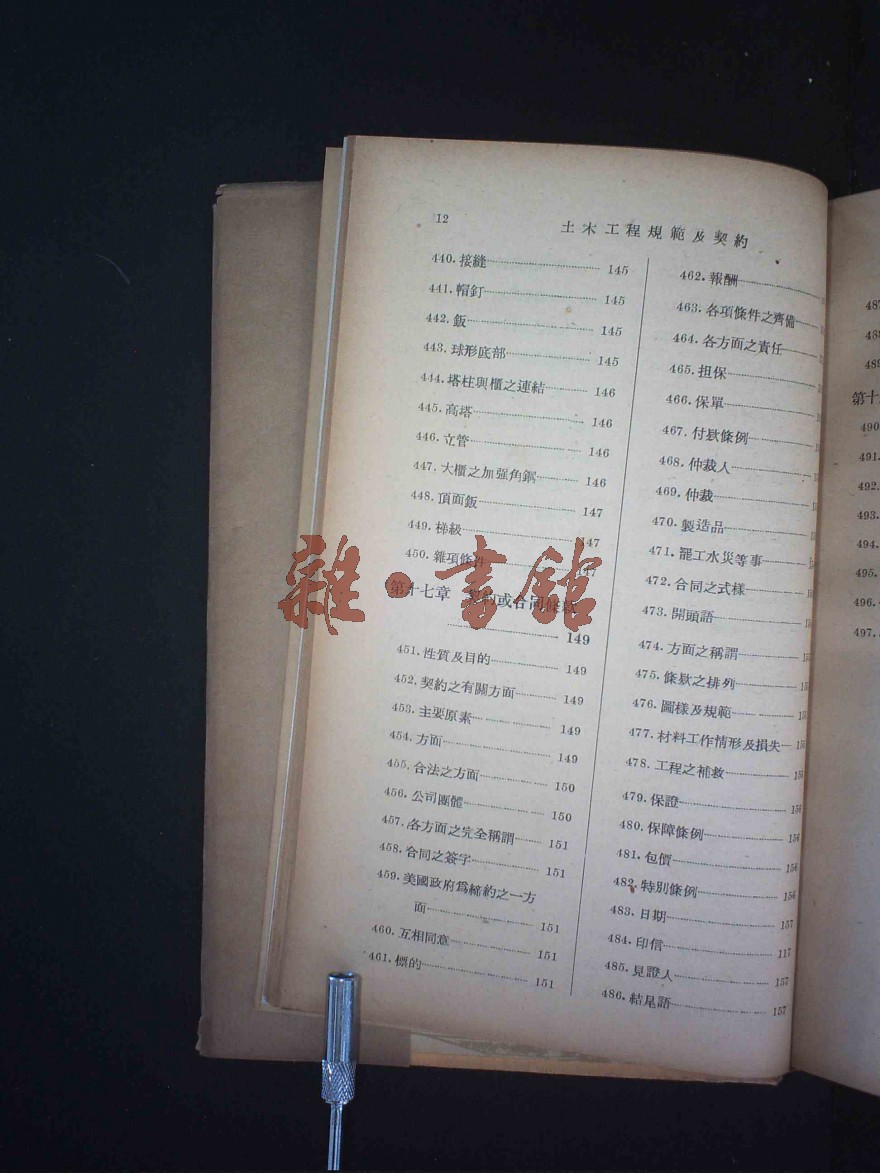 12
土木工程規範及契約
440. 接縫 145
441. 帽釘 145
442. 鈑 145
443. 球形底部 145
444. 塔柱與櫃之連結 146
445. 高塔 146
446. 立管 146
447. 大櫃之加强角鋼 146
448. 頂面鈑 147
449. 梯級 147
450. 雜項條件 147
第十七章 契約或合同條欵
149
451. 性質及目的 149
452. 契約之有關方面 149
453. 主要原素 149
454. 方面 149
455. 合法之方面 150
456. 公司團體 150
457. 各方面之完全稱謂 151
458. 合同之簽字 151
459. 美國政府爲締約之一方
面 151
460. 互相同意 151
461. 標的 151
462. 報酬
463. 各項條件之齊備
464. 各方面之責任
465. 担保
466. 保單
467. 付欵條例
468. 仲裁人
469. 仲裁
470. 製造品
471. 罷工水災等事
472. 合同之式樣
473. 開頭語
474. 方面之稱謂
475. 條欵之排列
476. 圖樣及規範
477. 材料工作情形及損失
478. 工程之補救
479. 保證 156
480. 保障條例 156
481. 包價 156
482. 特別條例 156
483. 日期 157
484. 印信 117
485. 見證人 157
486. 結尾語 157
487
488
489
第十
490
491.
492.
493.
494.
495.
496.
497.
雜·書館